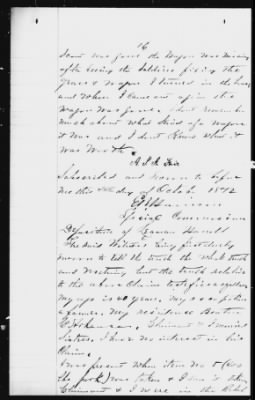 16
soon was gone the wagon was missing
after seeing the soldiers fixing the
and wagon I turned in the house
and when I came out again the
wagon was gone. I dont remember
much about what kind of a wagon
it was and I dont know what it
was worth.
Subscribed and sworn to before
me this day of October 1872
Special Commissioner
Deposition of Harrell
The said Witness being first duly
sworn to tell the truth the whole truth
and nothing but the truth relative
to the above claim testifies as follows
My age is 40 years, my occupation
a farmer, my residence Benton
Co Arkansas. Claimant &
sisters. I have no interest in this
claim.
I was present when item No 5 (
the pork) was taken & I saw it taken
Claimant & I were in the